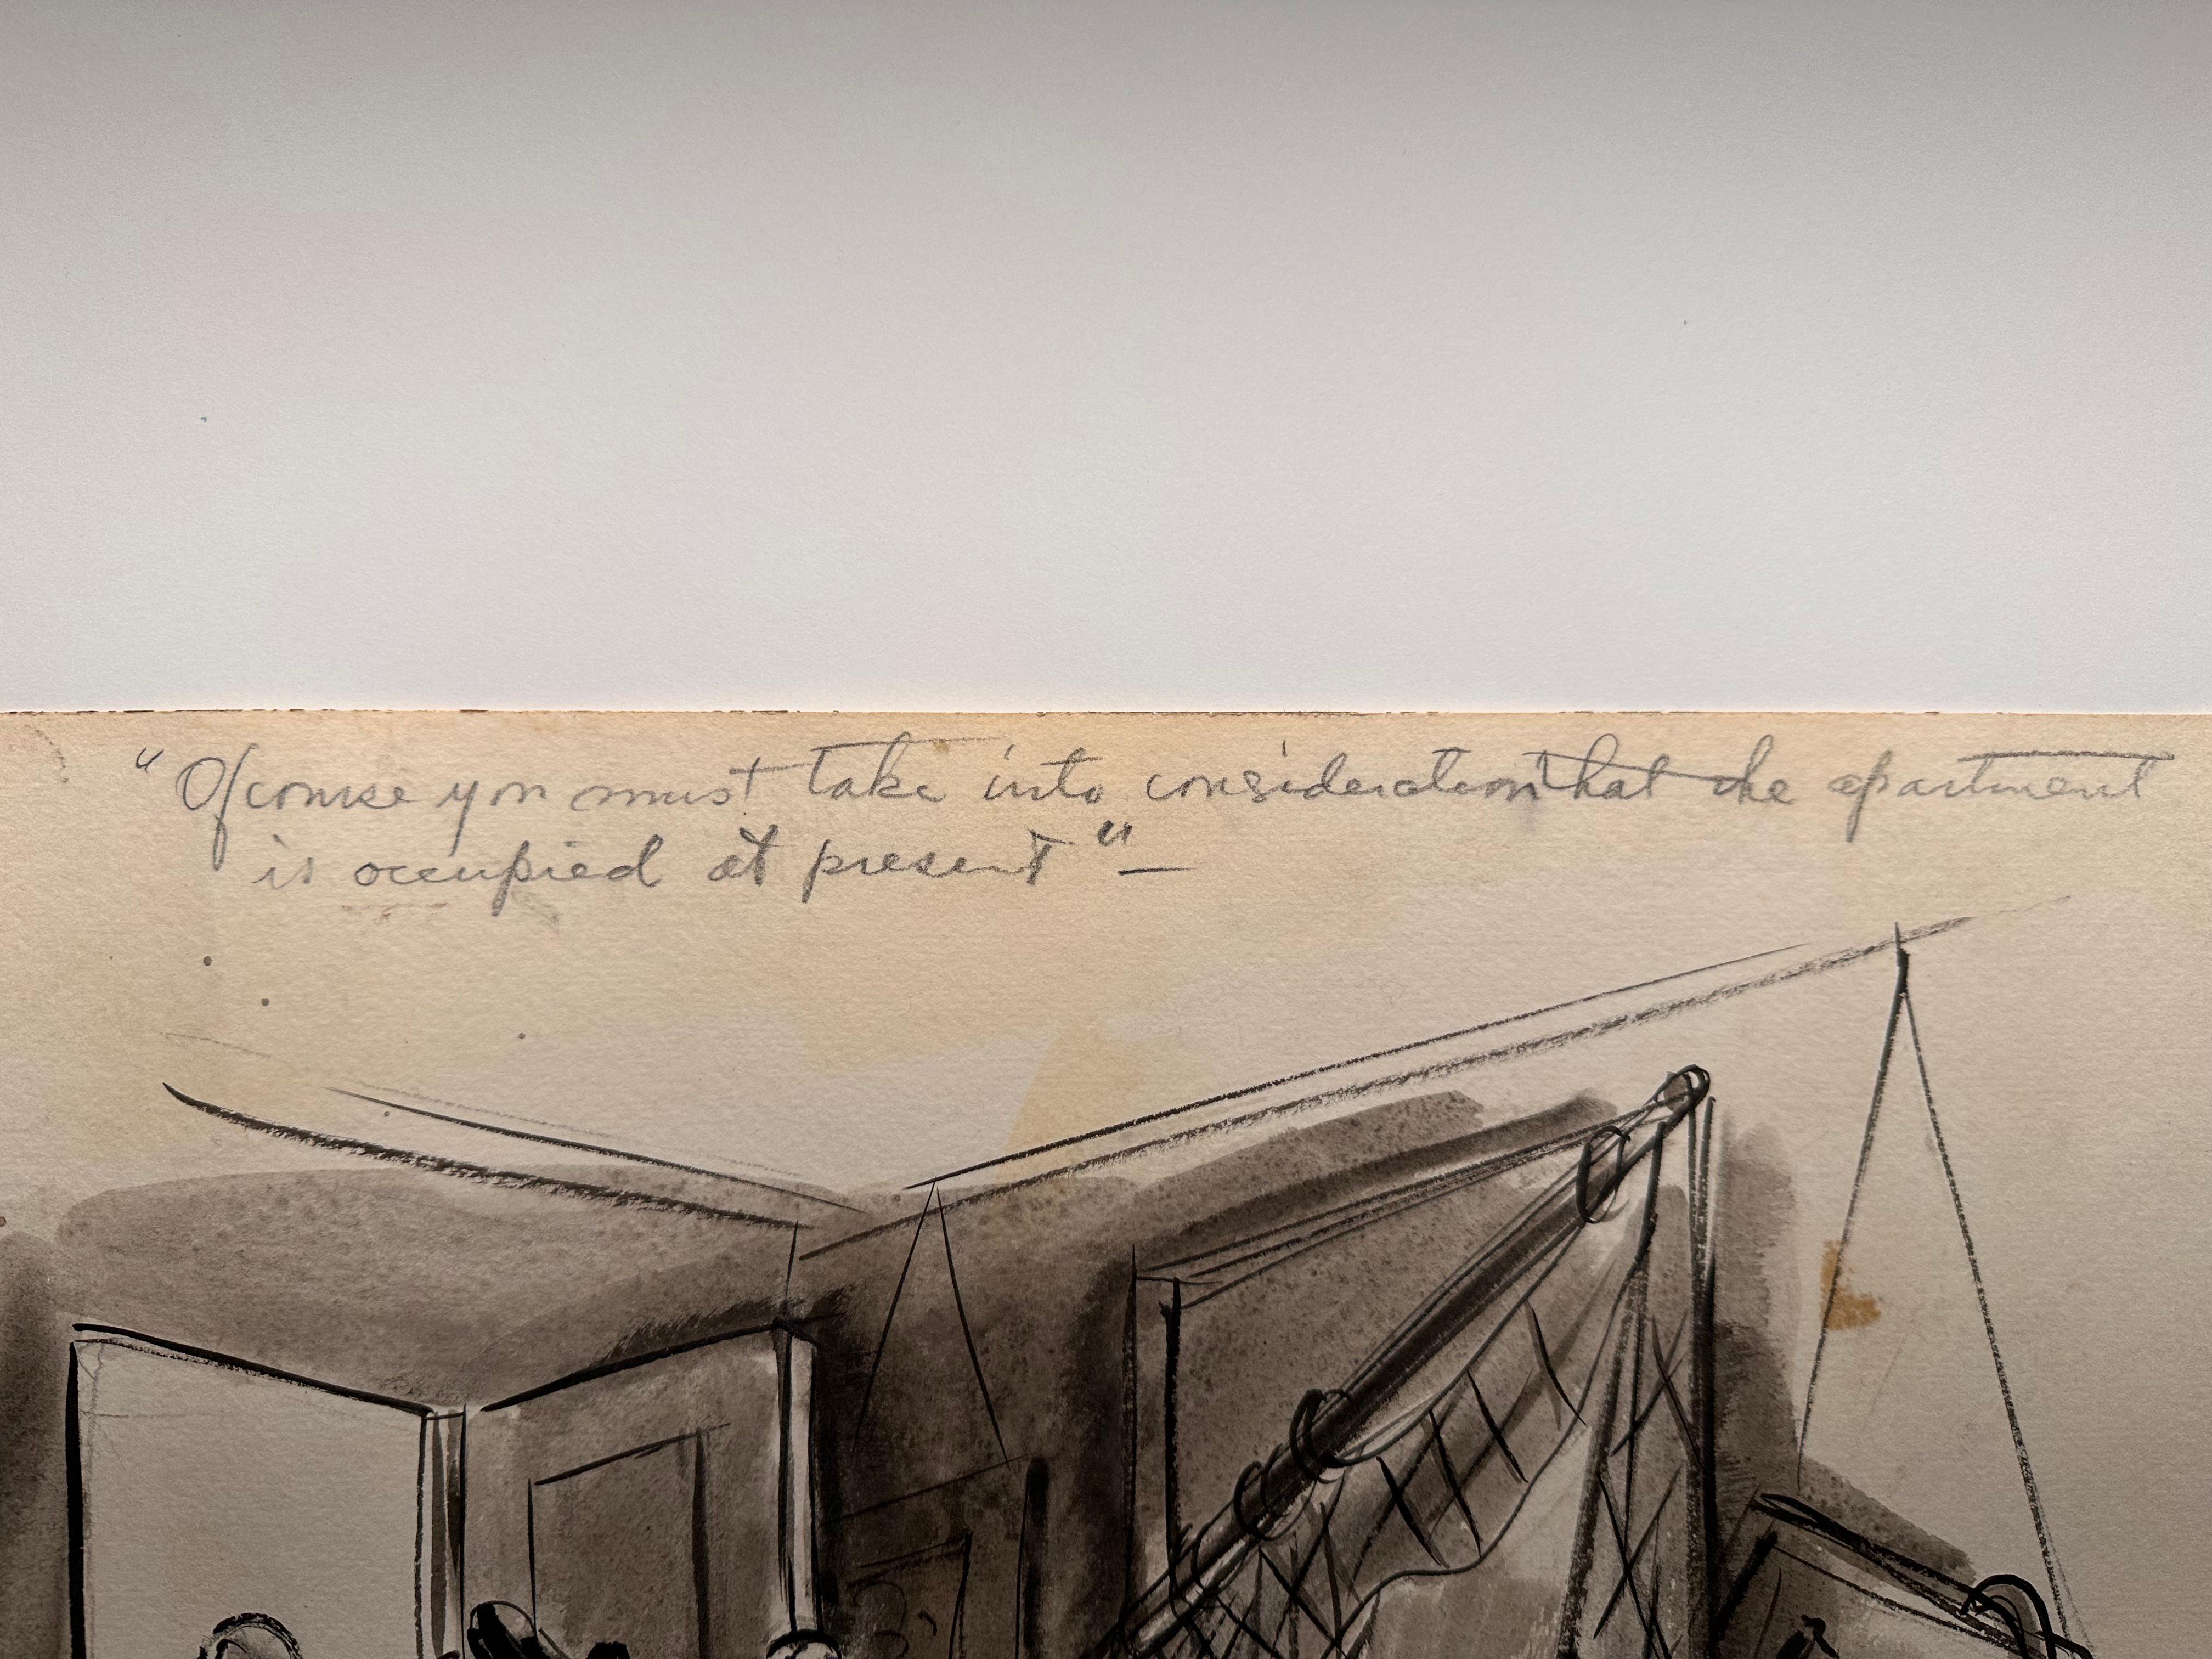 "Of course you must take into consideration that the apartment
is occupied at present" —